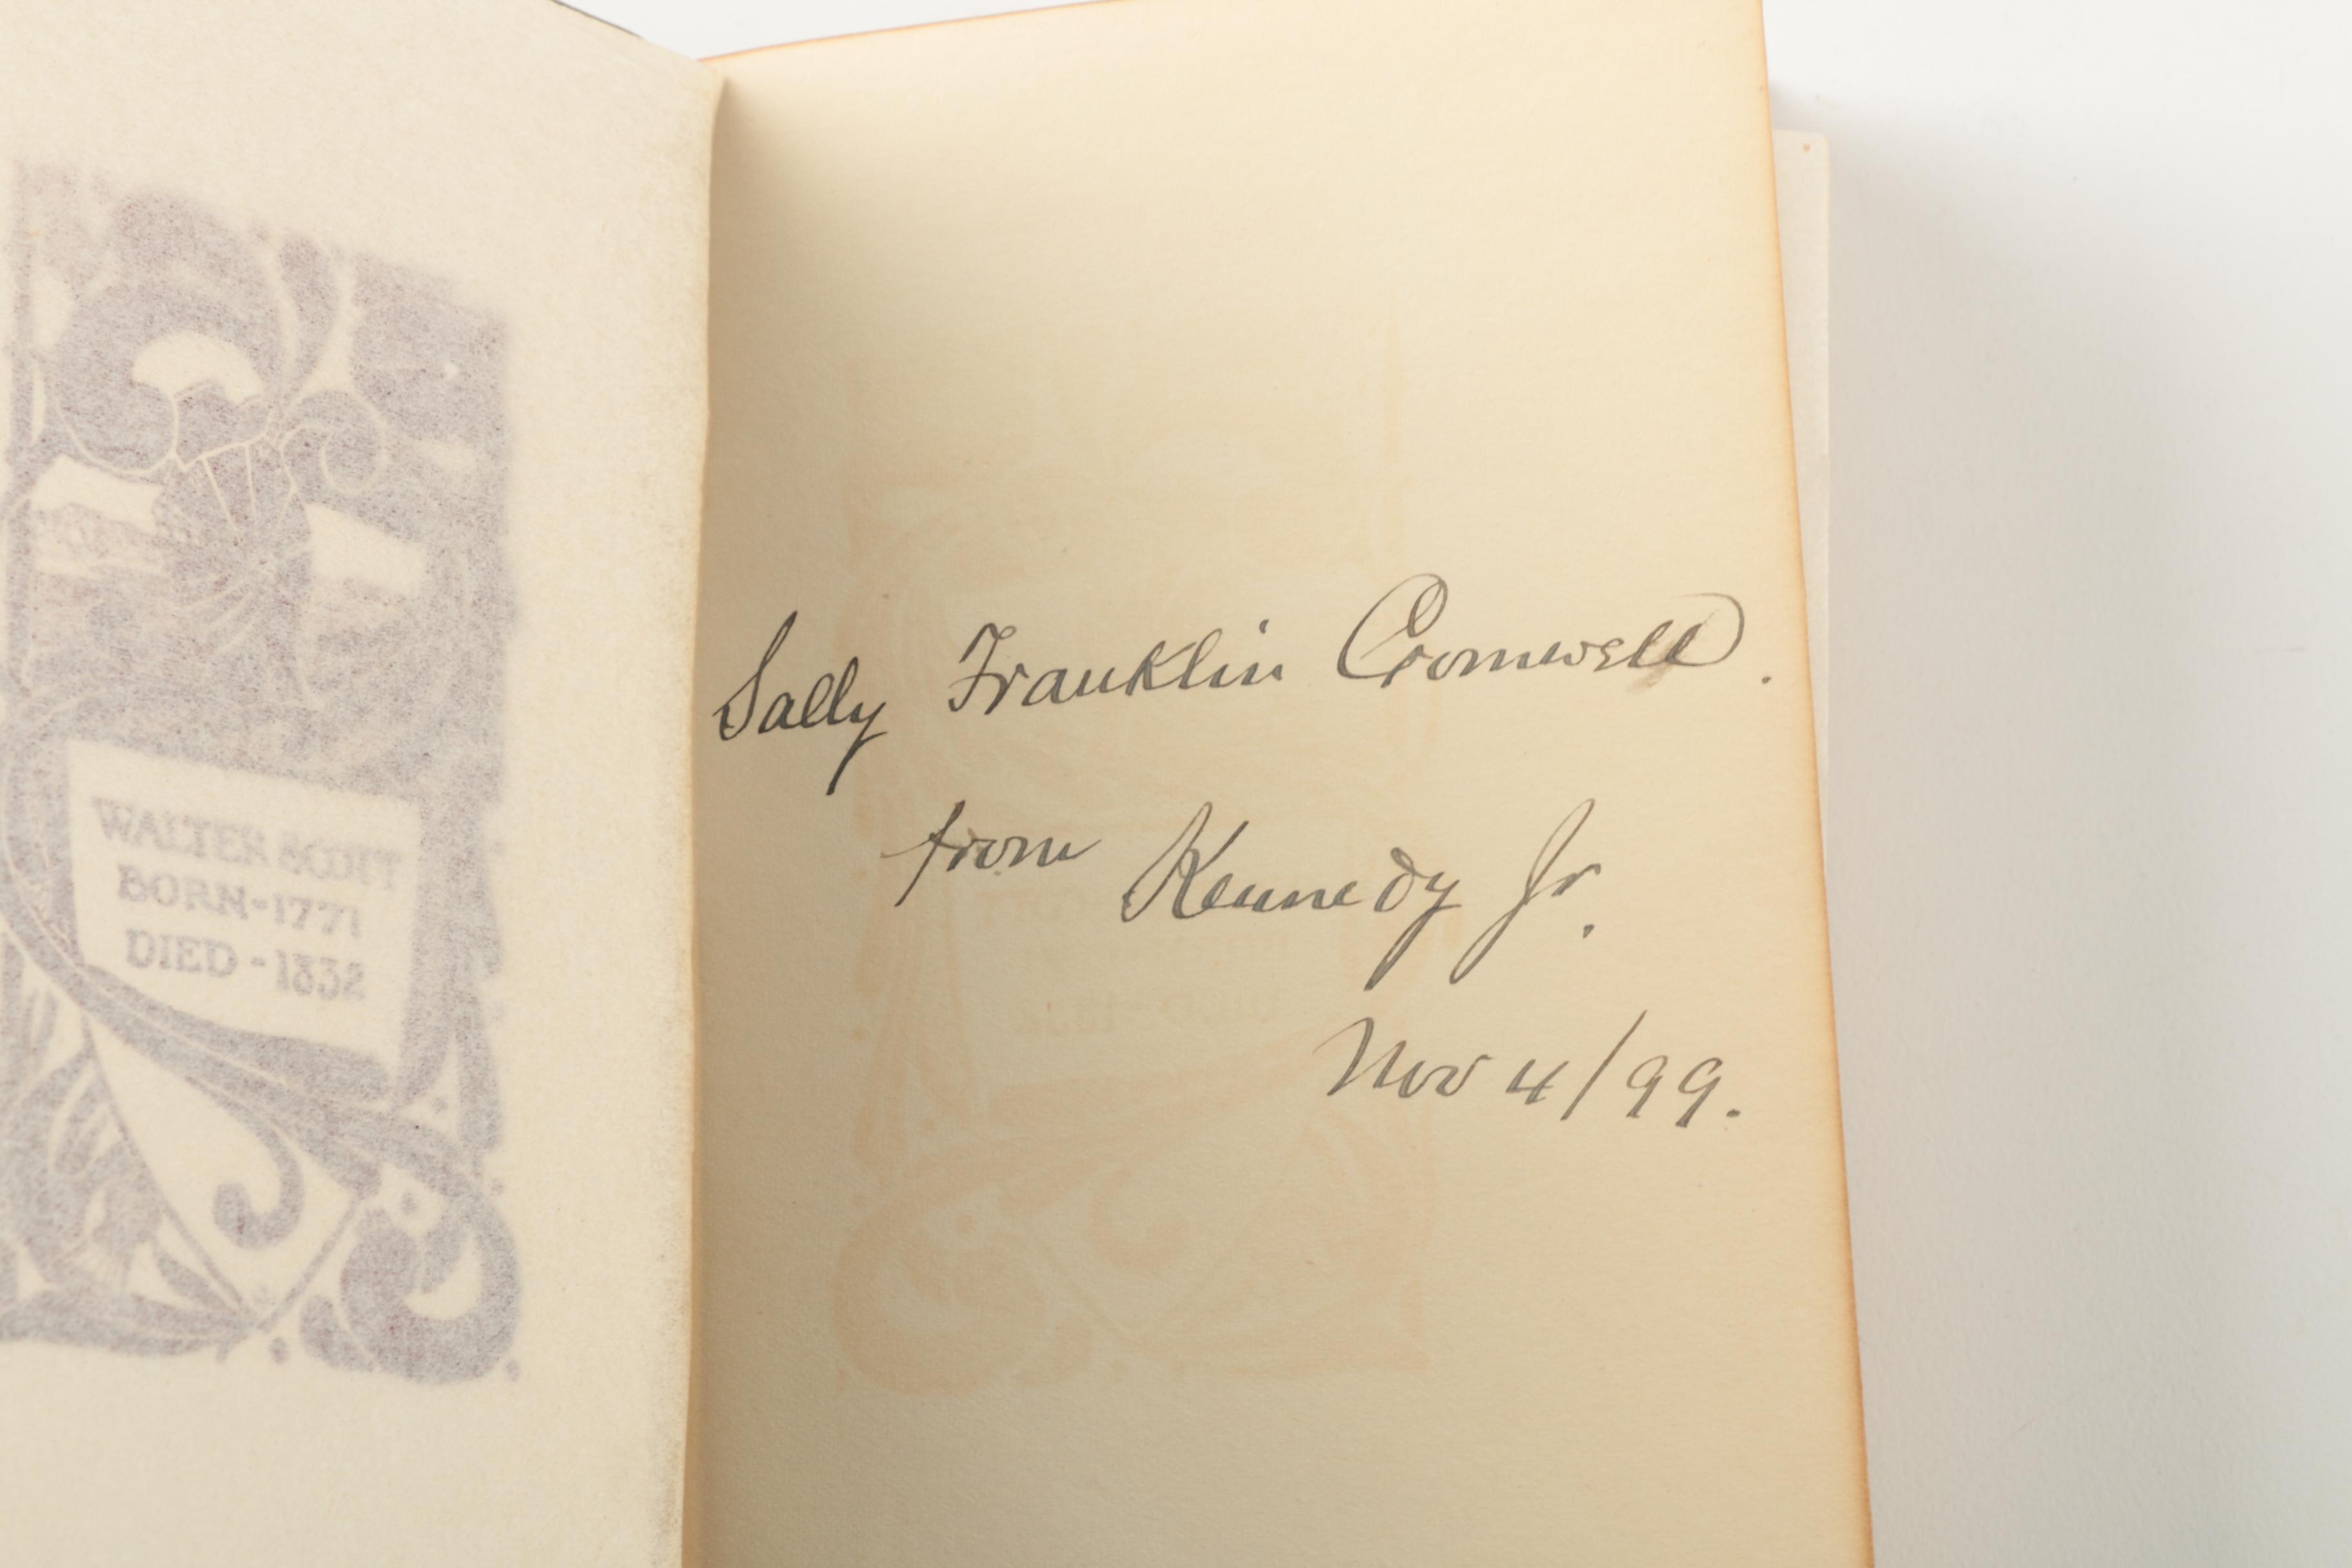 WALTER SCOTT
BORN-1771
DIED-1832
Sally Franklin Cromwell.
from Kennedy Jr.
Nov 4/99.